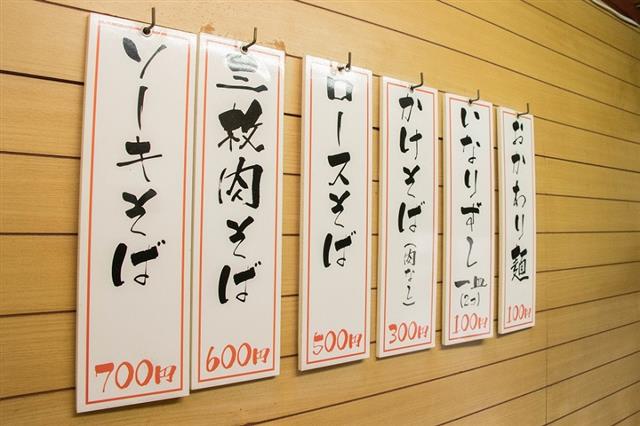 ソーキそば
700円
三枚肉そば
600円
ロースそば
500円
かけそば(肉なし)
300円
いなりずし
一皿(2コ)
100円
おかわり麺
100円